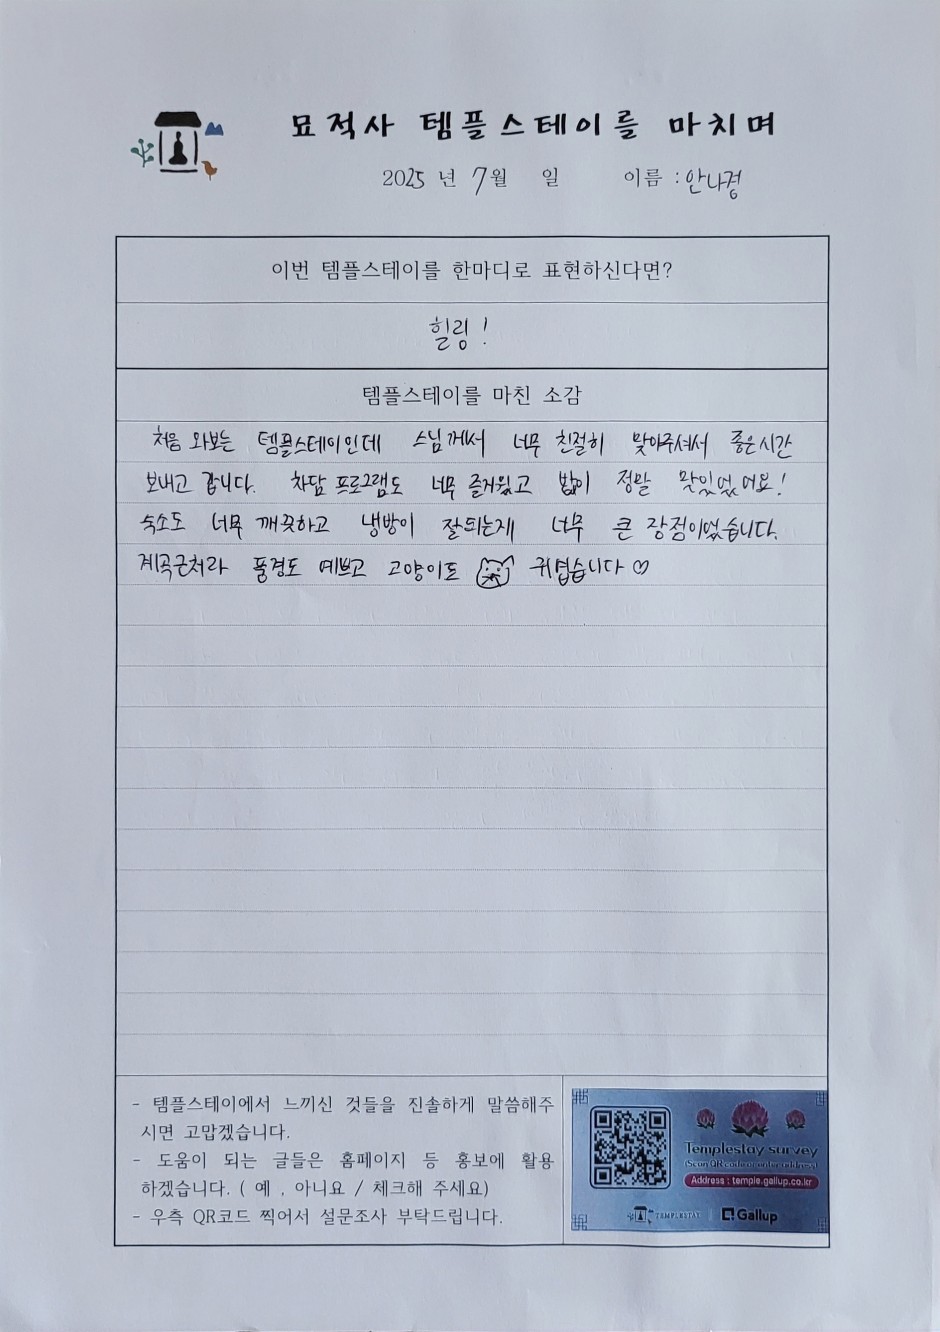 묘적사 템플스테이를 마치며
2025 년 7월 일 이름 : 안나경
이번 템플스테이를 한마디로 표현하신다면?
힐링!
템플스테이를 마친 소감
처음 와보는 템플스테이인데 스님께서 너무 친절히 맞아주셔서 좋은시간
보내고 갑니다. 차담 프로그램도 너무 즐거웠고 밥이 정말 맛있었어요!
숙소도 너무 깨끗하고 냉방이 잘되는게 너무 큰 장점이었습니다.
계곡근처라 풍경도 예쁘고 고양이도 귀엽습니다 ♡
- 템플스테이에서 느끼신 것들을 진솔하게 말씀해주
시면 고맙겠습니다.
- 도움이 되는 글들은 홈페이지 등 홍보에 활용
하겠습니다. ( 예 , 아니요 / 체크해 주세요)
- 우측 QR코드 찍어서 설문조사 부탁드립니다.
Templestay survey
(Scan QR code or enter address)
Address : temple.gallup.co.kr
TEMPLESTAY Gallup